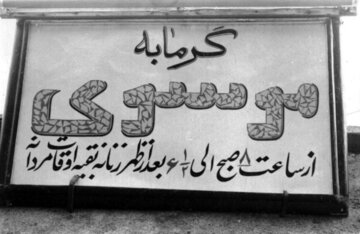 گرمابه
موسوی
از ساعت ۸ صبح الی ۶ ۱/۲ بعد از ظهر زنانه بقیه اوقات مردانه